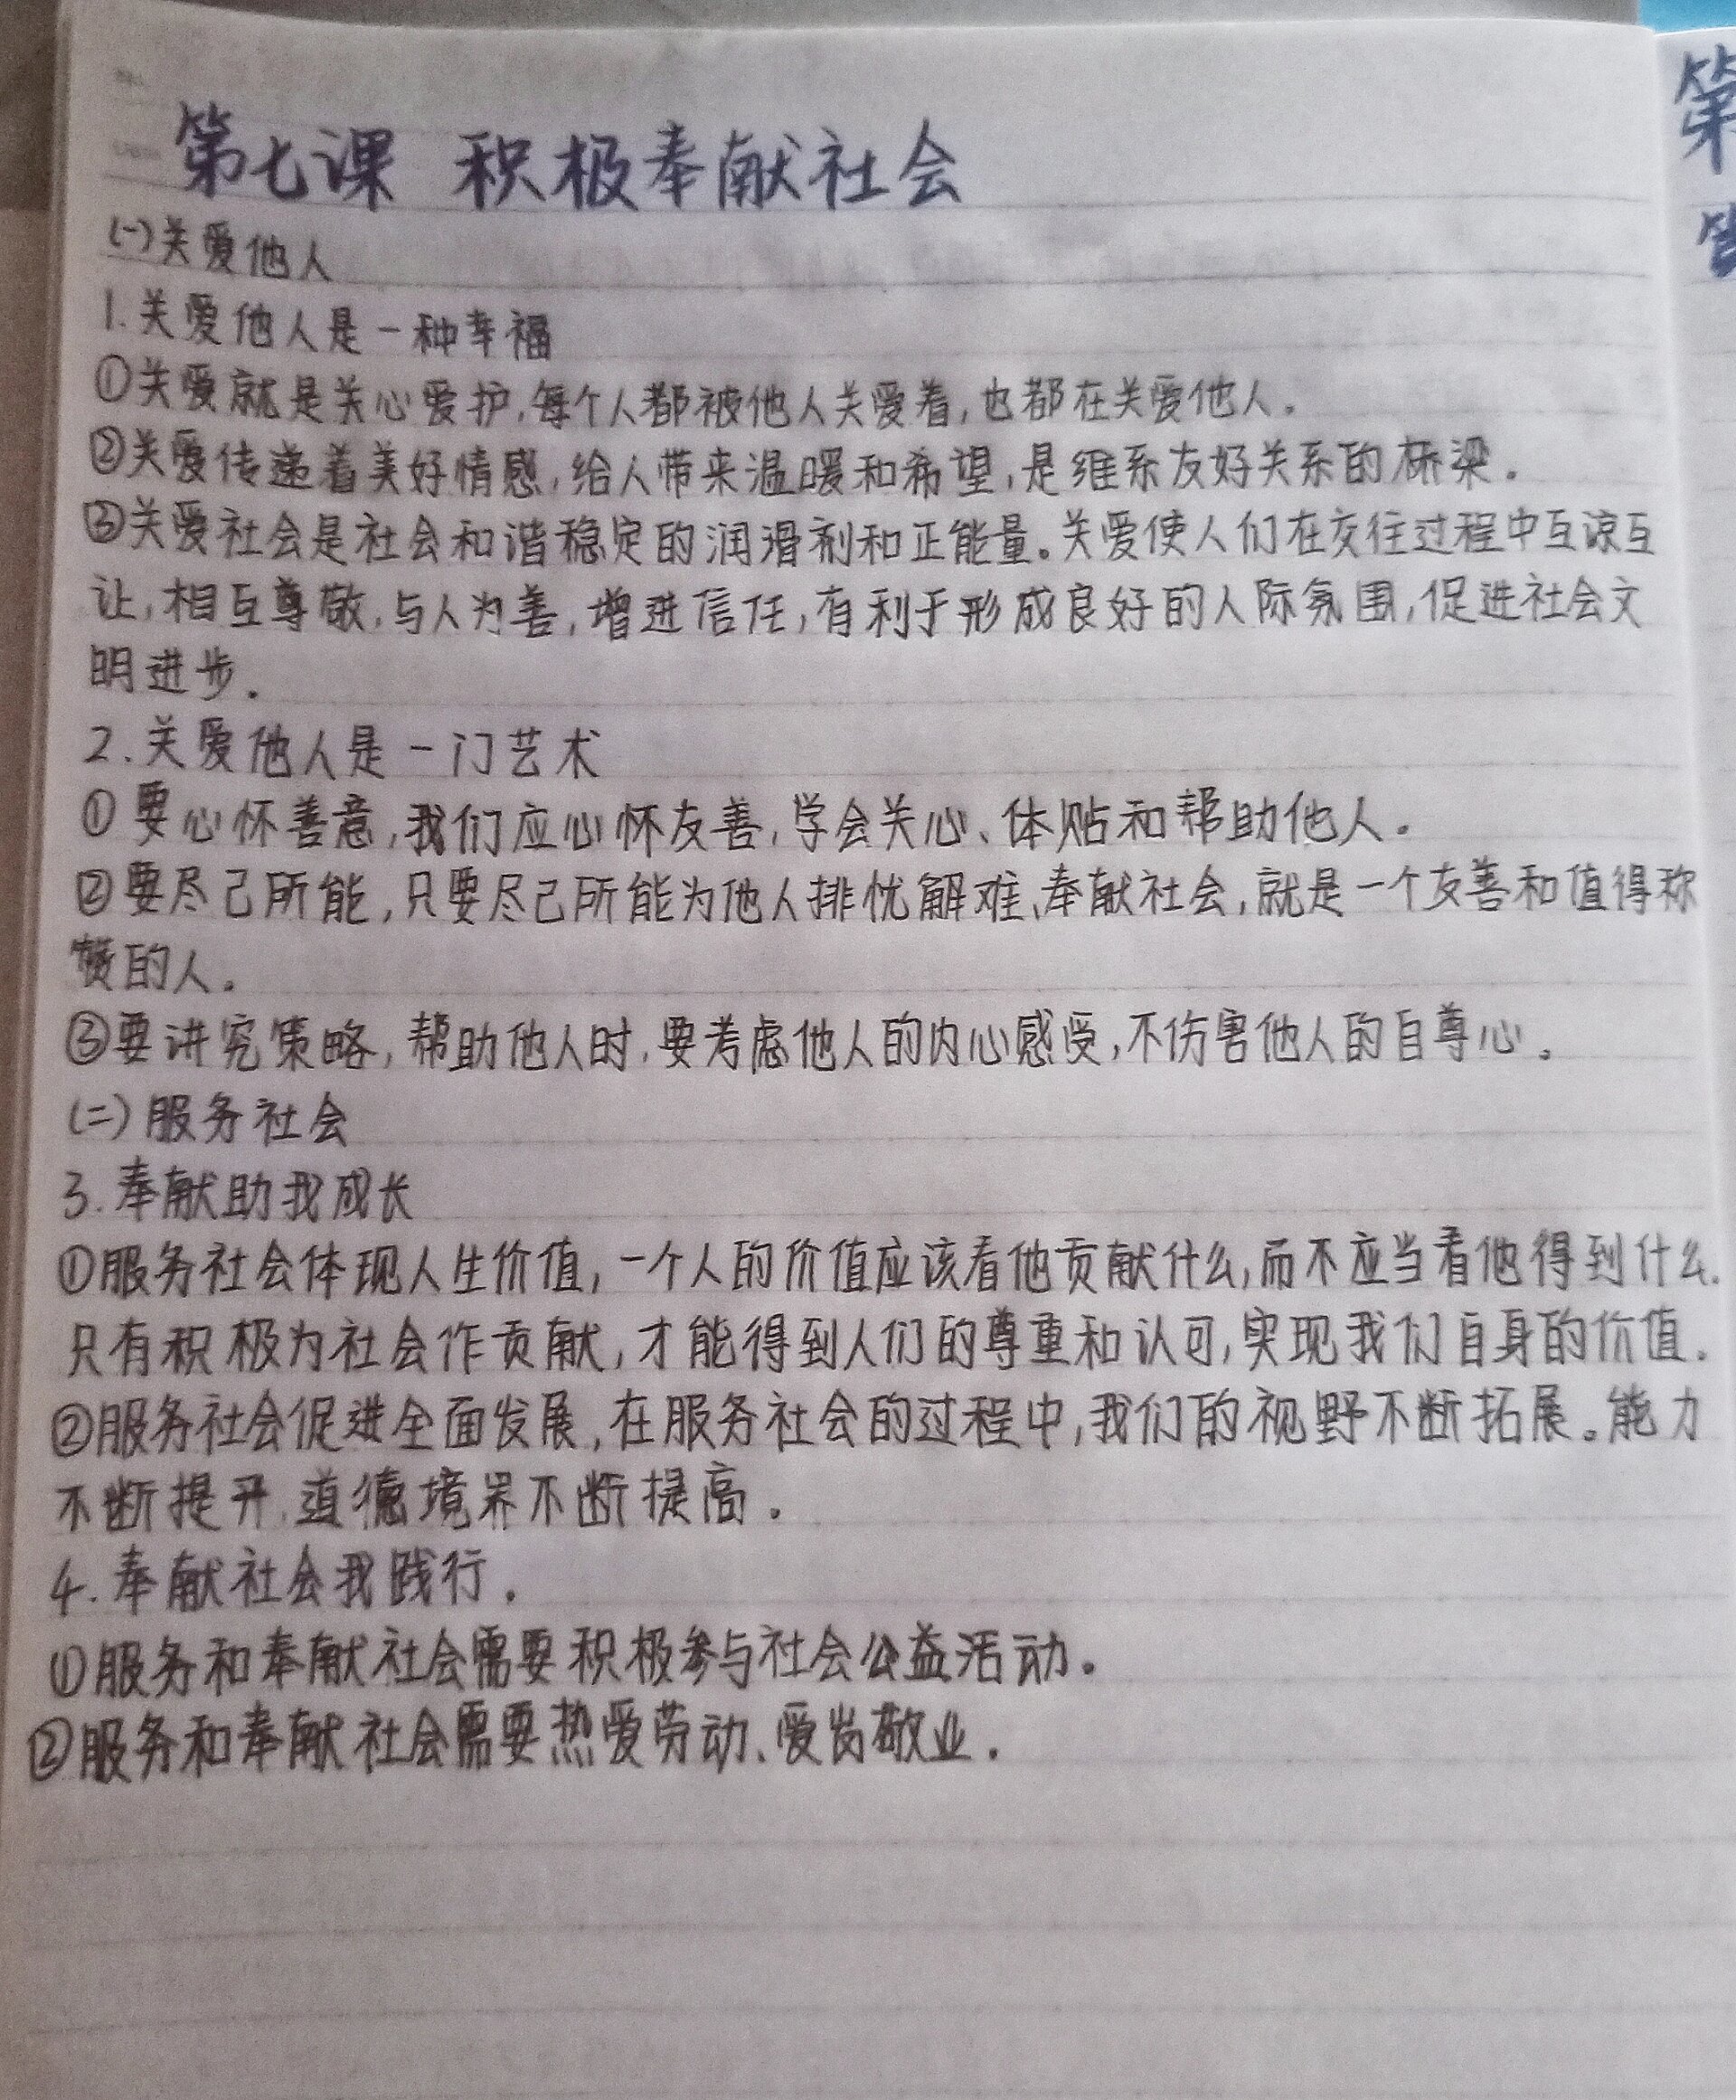 第七课 积极奉献社会
(一)关爱他人
1.关爱他人是一种幸福
①关爱就是关心爱护,每个人都被他人关爱着,也都在关爱他人。
②关爱传递着美好情感,给人带来温暖和希望,是维系友好关系的桥梁。
③关爱社会是社会和谐稳定的润滑剂和正能量。关爱使人们在交往过程中互谅互
让,相互尊敬,与人为善,增进信任,有利于形成良好的人际氛围,促进社会文
明进步.
2.关爱他人是一门艺术
①要心怀善意,我们应心怀友善,学会关心、体贴和帮助他人。
②要尽己所能,只要尽己所能为他人排忧解难、奉献社会,就是一个友善和值得称
赞的人。
③要讲究策略,帮助他人时,要考虑他人的内心感受,不伤害他人的自尊心。
(二)服务社会
3.奉献助我成长
①服务社会体现人生价值,一个人的价值应该看他贡献什么,而不应当看他得到什么.
只有积极为社会作贡献,才能得到人们的尊重和认可,实现我们自身的价值.
②服务社会促进全面发展,在服务社会的过程中,我们的视野不断拓展。能力
不断提升,道德境界不断提高.
4.奉献社会我践行.
①服务和奉献社会需要积极参与社会公益活动。
②服务和奉献社会需要热爱劳动、爱岗敬业.
第